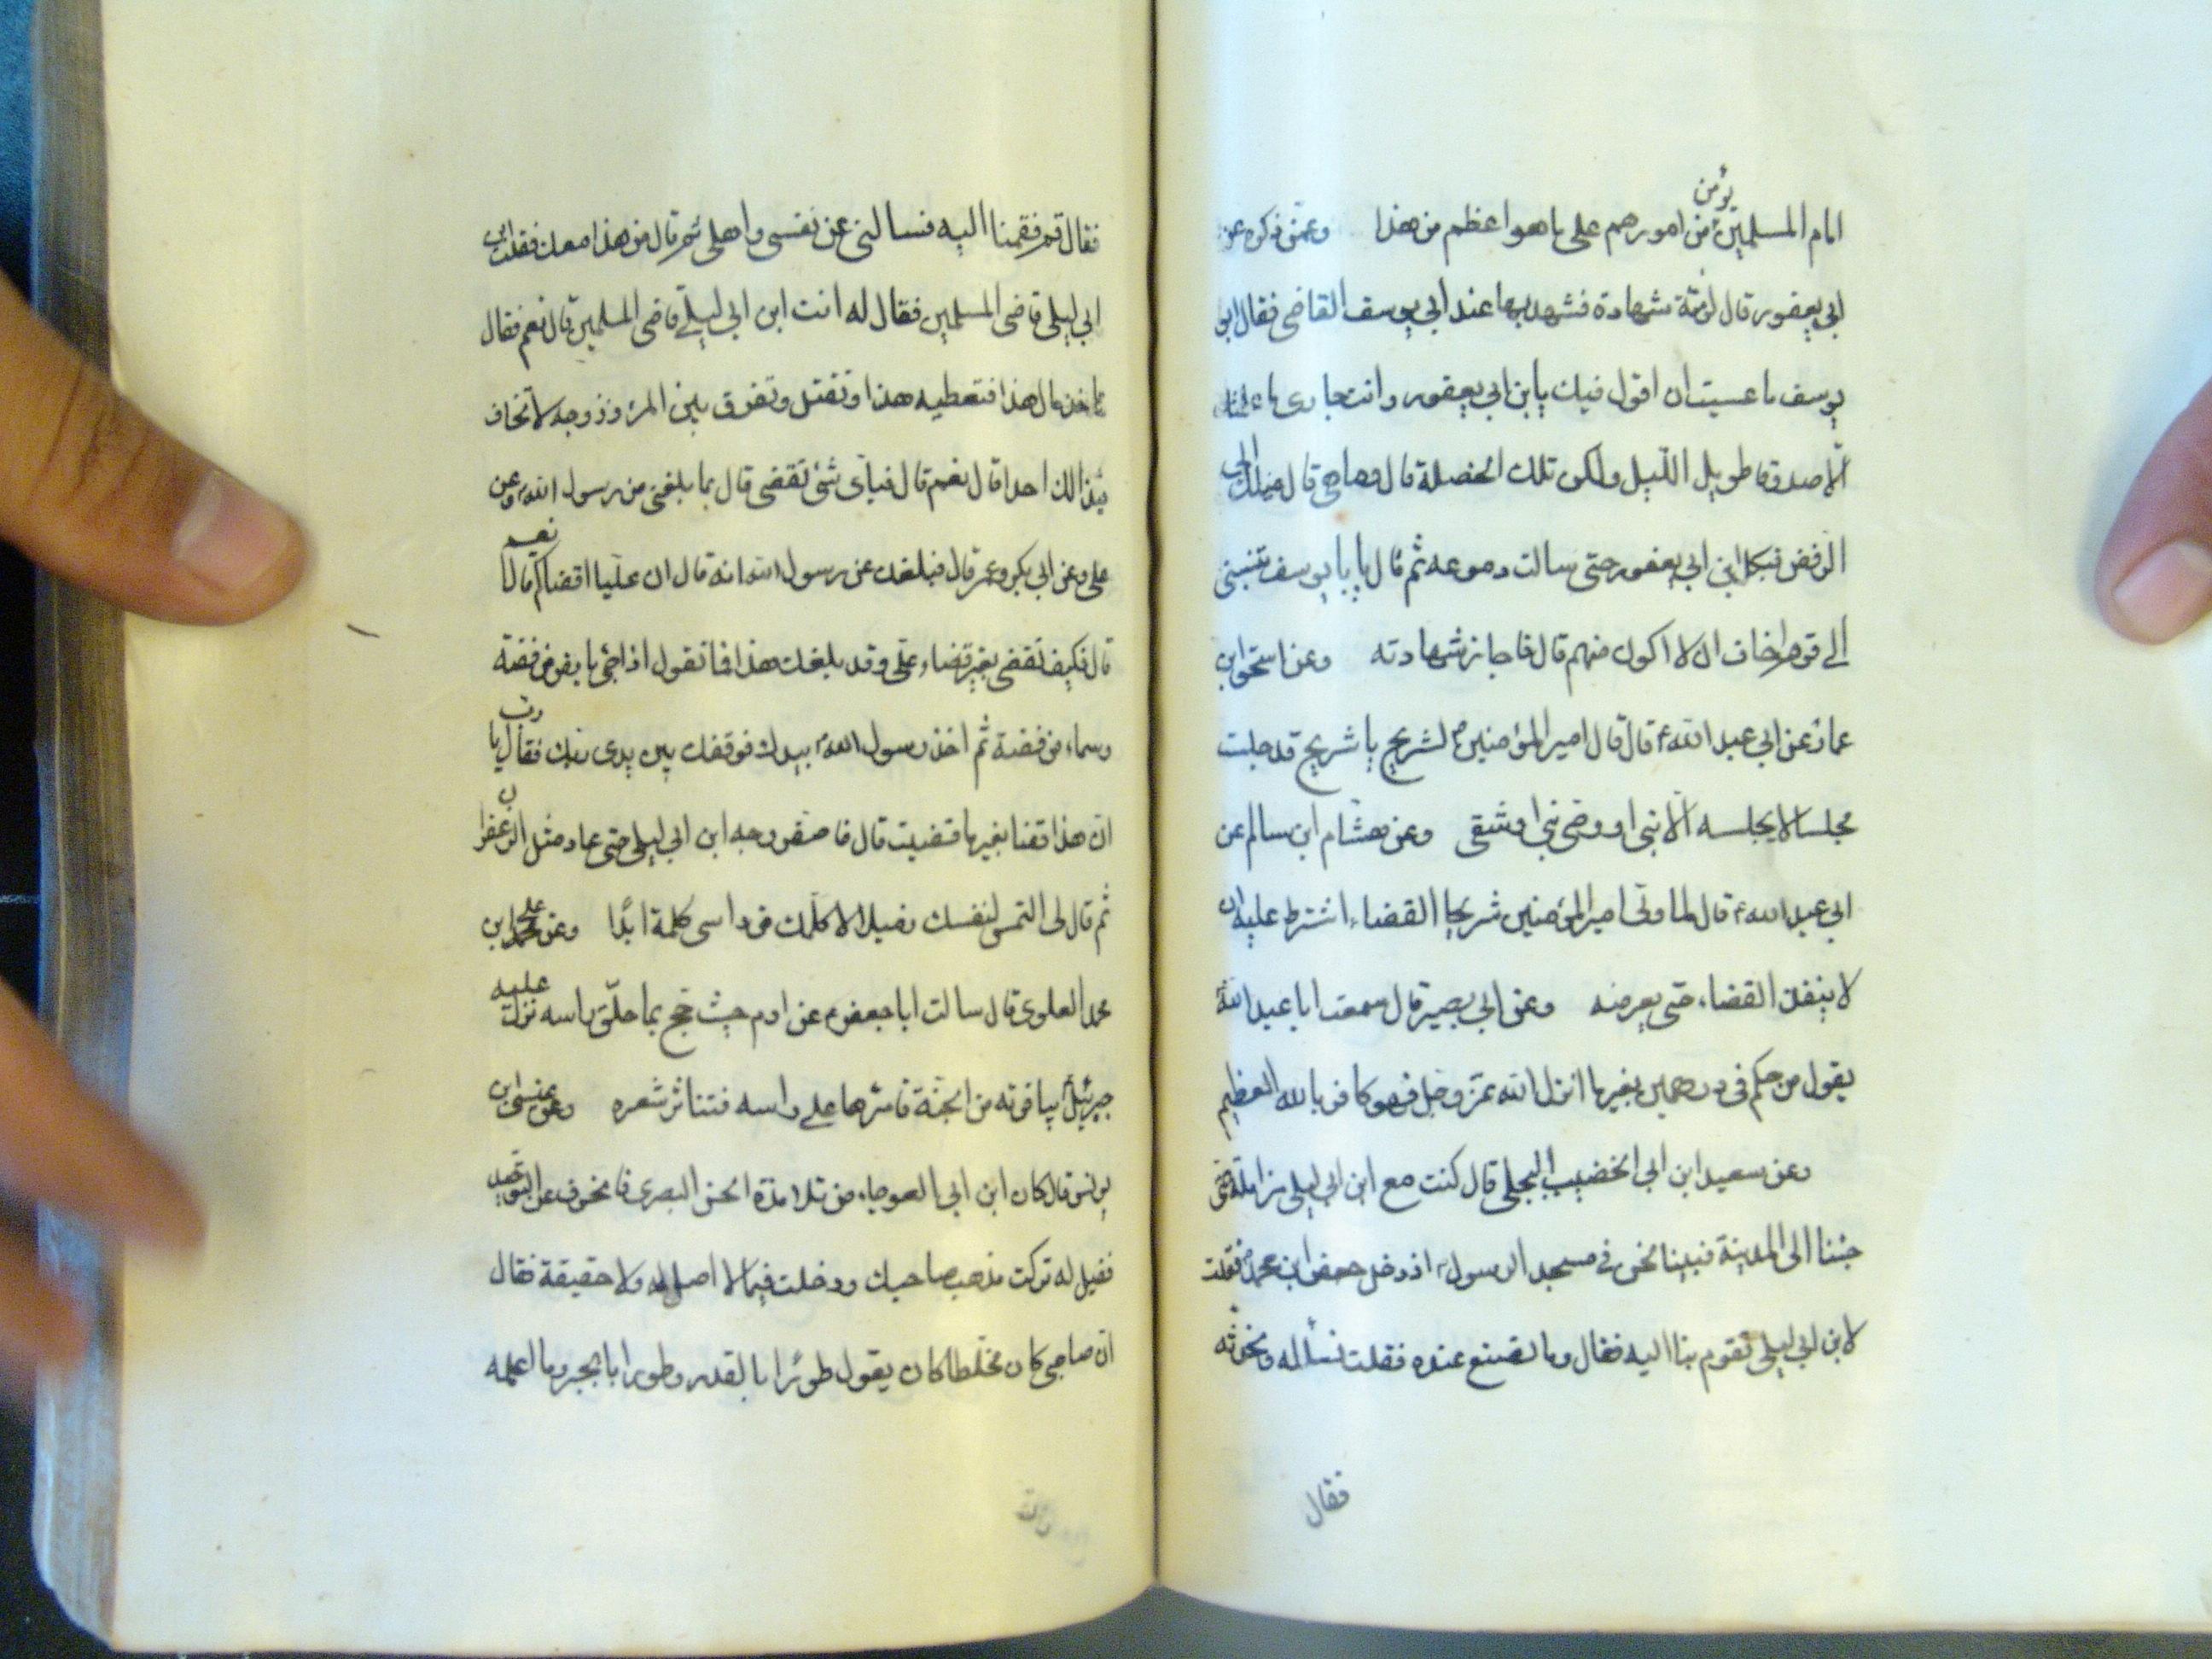 امام المسلمين يؤمن من امورهم على ما هو اعظم من هذا وعمّن ذكره عن
ابي يعفور قال لزمته شهادة فشهد بها عند ابي يوسف القاضي فقال ابو
يوسف ما عسيت ان اقول فيك يابن ابي يعفور وانت جاري ما علمتك
الّا صدوقا طويل اللّيل ولكن تلك الخصلة قال وما هي قال ميلك الى
الرفض فبكا ابن ابي يعفور حتى سالت دموعه ثم قال يا با يوسف تنسبني
الى قوم اخاف ان لا اكون منهم قال فاجاز شهادته وعن اسحق ابن
عمار عن ابي عبد الله ع قال قال امير المؤمنين ع لشريح يا شريح قد جلست
مجلسا لا يجلسه الّا نبي او وصي نبي او شقى وعن هشام ابن سالم عن
ابي عبد الله ع قال لما ولّى امير المؤمنين شريحا القضاء اشترط عليه ان
لا ينفذ القضاء حتى يعرضه وعن ابي بصير قال سمعت ابا عبد الله
يقول من حكم في درهمين بغير ما انزل الله عزّ وجل فهو كافر بالله العظيم
وعن سعيد ابن ابي الخضيب البجلي قال كنت مع ابن ابي ليلى مزاملة حتى
جئنا الى المدينة فبينا نحن في مسجد الرسول ص اذ دخل جعفر ابن محمد فقلت
لابن ابي ليلى تقوم بنا اليه فقال وما نصنع عنده فقلت نسأله ونحدّثه
فقال
فقال قم فقمنا اليه فسالني عن نفسي واهلي ثم قال من هذا معك فقلت ابن
ابي ليلى قاضي المسلمين فقال له انت ابن ابي ليلى قاضي المسلمين قال نعم فقال
تاخذ مال هذا فتعطيه هذا وتقتل وتفرق بين المرء وزوجه لا تخاف
بذالك احدا قال نعم قال فباي شئ تقضي قال بما بلغني من رسول الله ص وعن
علي وعن ابي بكر وعمر قال فبلغك عن رسول الله انه قال ان عليا اقضاكم قال نعم
قال فكيف تقضي بغير قضاء علي وقد بلغك هذا فما تقول اذا جئ بارض من فضة
وسماء من فضة ثم اخذ رسول الله ص بيدك فوقفك بين يدى ربك فقال يا رب
ان هذا قضا بغير ما قضيت قال فاصفر وجه ابن ابي ليلى حتى عاد مثل الزعفران
ثم قال لي التمس لنفسك زميلا لا اكلمك من راسى كلمة ابدًا وعن على ابن
محمد العلوى قال سالت ابا جعفر ع عن ادم حيث حج بما حلق راسه نزل عليه
جبرئيل بياقوته من الجنة فامرّها على راسه فتناثر شعره وعن عيسى ابن
يونس قال كان ابن ابي العوجاء من تلامذة الحسن البصرى فانحرف عن التوحيد
فقيل له تركت مذهب صاحبك ودخلت فيما لا اصل له ولا حقيقة فقال
ان صاحبي كان مخلطا كان يقول طورًا بالقدر وطورا بالجبر وما اعلمه